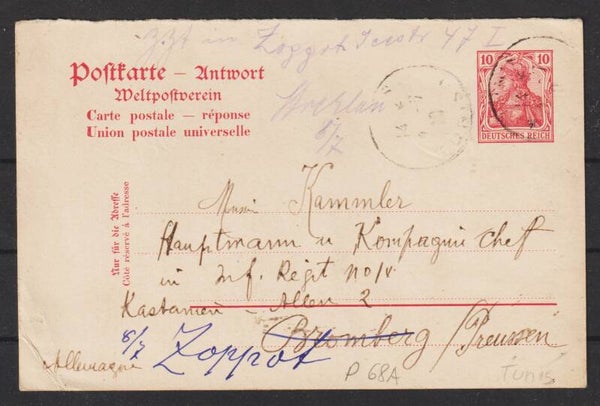 z.Zt in Zoppot Seestr 47 I
Postkarte – Antwort
Weltpostverein
Carte postale – réponse
Union postale universelle
8/7
10 10
DEUTSCHES REICH
Nur für die Adresse
Côté réservé à l'adresse
Kammler
Hauptmann u Kompagnie chef
in Inf. Regit no
Allee 2
Bromberg / Preussen
8/7 Zoppot
Allemagne
P 68A
Tunis